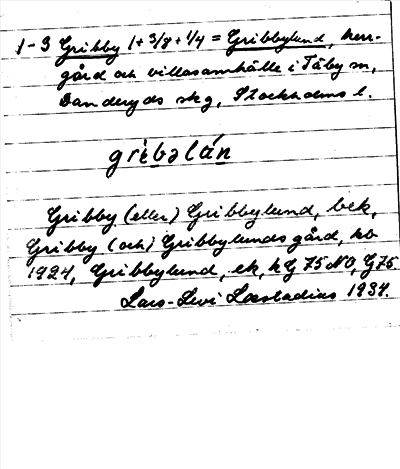 1-3 Gribby 1+3/8+1/4 = Gribbylund, herr-
gård och villasamhälle i Täby sn,
Danderyds skg, Stockholms l.
gribəlán
Gribby (eller) Gribbylund, bek,
Gribby (och) Gribbylunds gård, ko
1924, Gribbylund, ek, hG 75 NO, G75.
Lars-Levi Læstadius 1934.